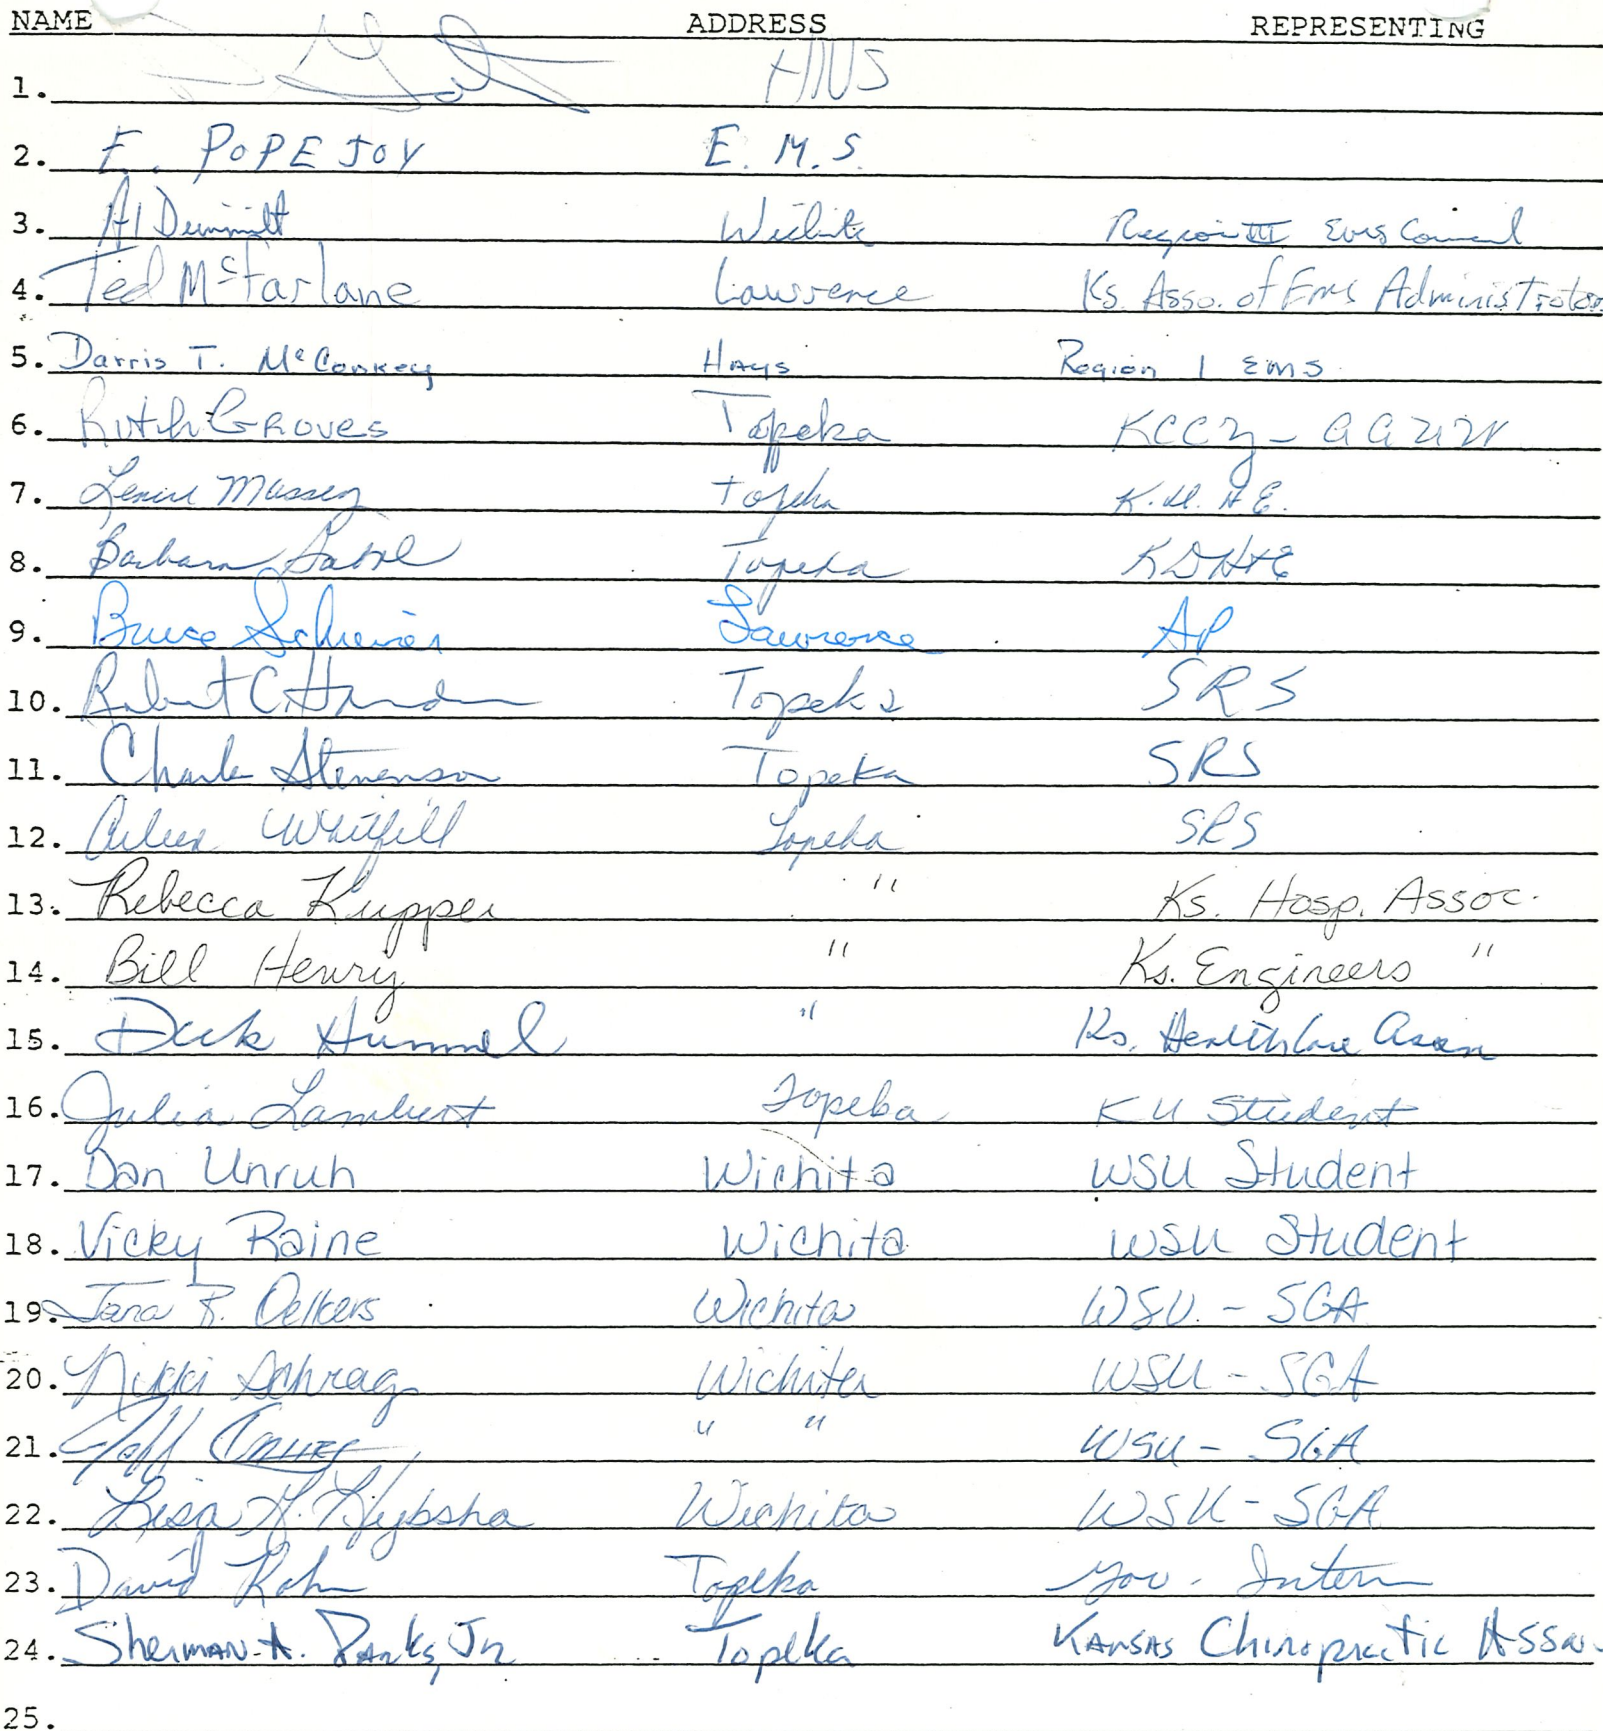 NAME ADDRESS REPRESENTING
1.
2. E. POPEJOY E.M.S.
3. Al Dimmitt Wichita Region III EMS Council
4. Ted McFarlane Lawrence Ks. Asso. of EMS Administrators
5. Darris T. McConkey HAYS Region 1 EMS
6. Ruth GROVES Topeka
7. Massey Topeka
8. Barbara Sabol Topeka KDH+E
9. Bruce Lawrence AP
10. Robert C. Harder Topeka SRS
11. Charles Stevenson Topeka SRS
12. Whitfill Topeka SRS
13. Rebecca Kupper " Ks. Hosp. Assoc.
14. Bill Henry " Ks. Engineers "
15. Dick Hummel " Ks. Health Care Assn
16. Julia Lambert Topeka KU Student
17. Dan Unruh Wichita WSU Student
18. Vicky Raine Wichita WSU Student
19. Jana R. Oelkers Wichita WSU - SGA
20. Nikki Schrag Wichita WSU - SGA
21. " " WSU - SGA
22. Lisa Wichita WSU - SGA
23. David Topeka Gov. Intern
24. Sherman A. Parks, Jr. Topeka KANSAS Chiropractic Assn.
25.